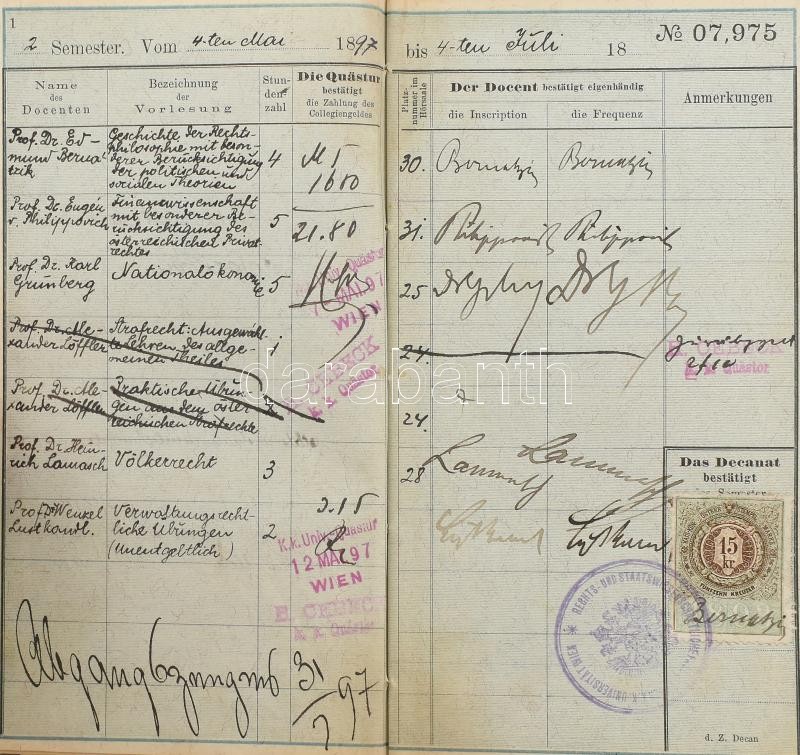 1
2 Semester. Vom 4-ten Mai 1897 bis 4-ten Juli 18
№ 07,975
Name des Docenten
Bezeichnung der Vorlesung
Stun-
den-
zahl
Die Quästur
bestätigt
die Zahlung des
Collegiengeldes
Platz-
nummer im
Hörsaale
Der Docent bestätigt eigenhändig
die Inscription
die Frequenz
Anmerkungen
Prof. Dr. Ed-
mund Berna-
tzik
Geschichte der Rechts-
philosophie mit beson-
derer Berücksichtigung
der politischen und
socialen Theorien
4
M 5
1600
30.
Bernatzik
Bernatzik
Prof. Dr. Eugen
v. Philippovich
Finanzwissenschaft
mit besonderer Be-
rücksichtigung des
österreichischen Privat-
rechtes
5
21.80
31.
Philippovich
Philippovich
Prof. Dr. Karl
Grünberg
Nationalökonomie
5
K.k. Univ.-Quästur
MAI 97
WIEN
25
Prof. Dr. Ale-
xander Löffler
Strafrecht: Ausgewähl-
te Lehren des allge-
meinen Theiles
1
24
k. k. Quästor
Prof. Dr. Ale-
xander Löffler
Praktische Übun-
gen aus dem öster-
reichischen Strafrechte
24.
Prof. Dr. Hein-
rich Lamasch
Völkerrecht
3
28
Lammasch
Lammasch
Prof. Dr. Wenzel
Lustkandl.
Verwaltungsrecht-
liche Übungen
(Unentgeltlich)
2
3.15
Lustkandl
Lustkandl
K.k. Univ.-Quästur
12 MAI 97
WIEN
k. k. Quästor
Das Decanat
bestätigt
15
kr.
FÜNFZEHN KREUZER
Bernatzik
RECHTS- UND STAATSWISSENSCHAFTLICHE
K.K. UNIVERSITÄT WIEN
Abgangszeugnis 31/7 97
d. Z. Decan
darabanth